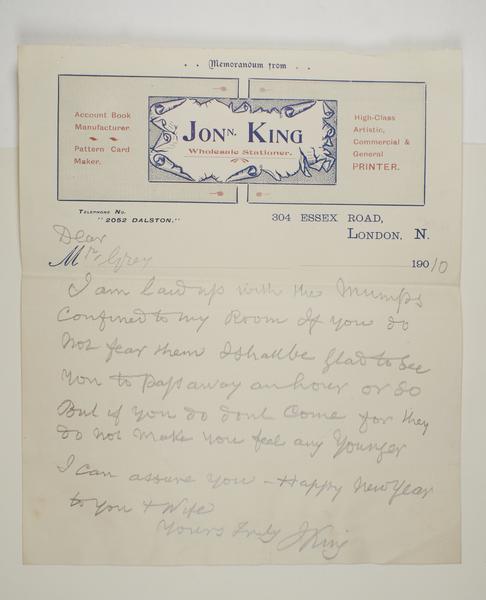 Memorandum from
Account Book
Manufacturer.
Pattern Card
Maker.
JONN. KING
Wholesale Stationer.
High-Class
Artistic,
Commercial &
General
PRINTER.
TELEPHONE NO.
"2052 DALSTON."
304 ESSEX ROAD,
LONDON, N.
Dear
Mr Grey
190 10
I am laid up with the Mumps
Confined to my Room If you do
Not fear them I shall be glad to See
You to pass away an hour or So
But if you do dont Come for they
do not make you feel any Younger
I can assure you - Happy New Year
to you & Wife
Yours truly J King